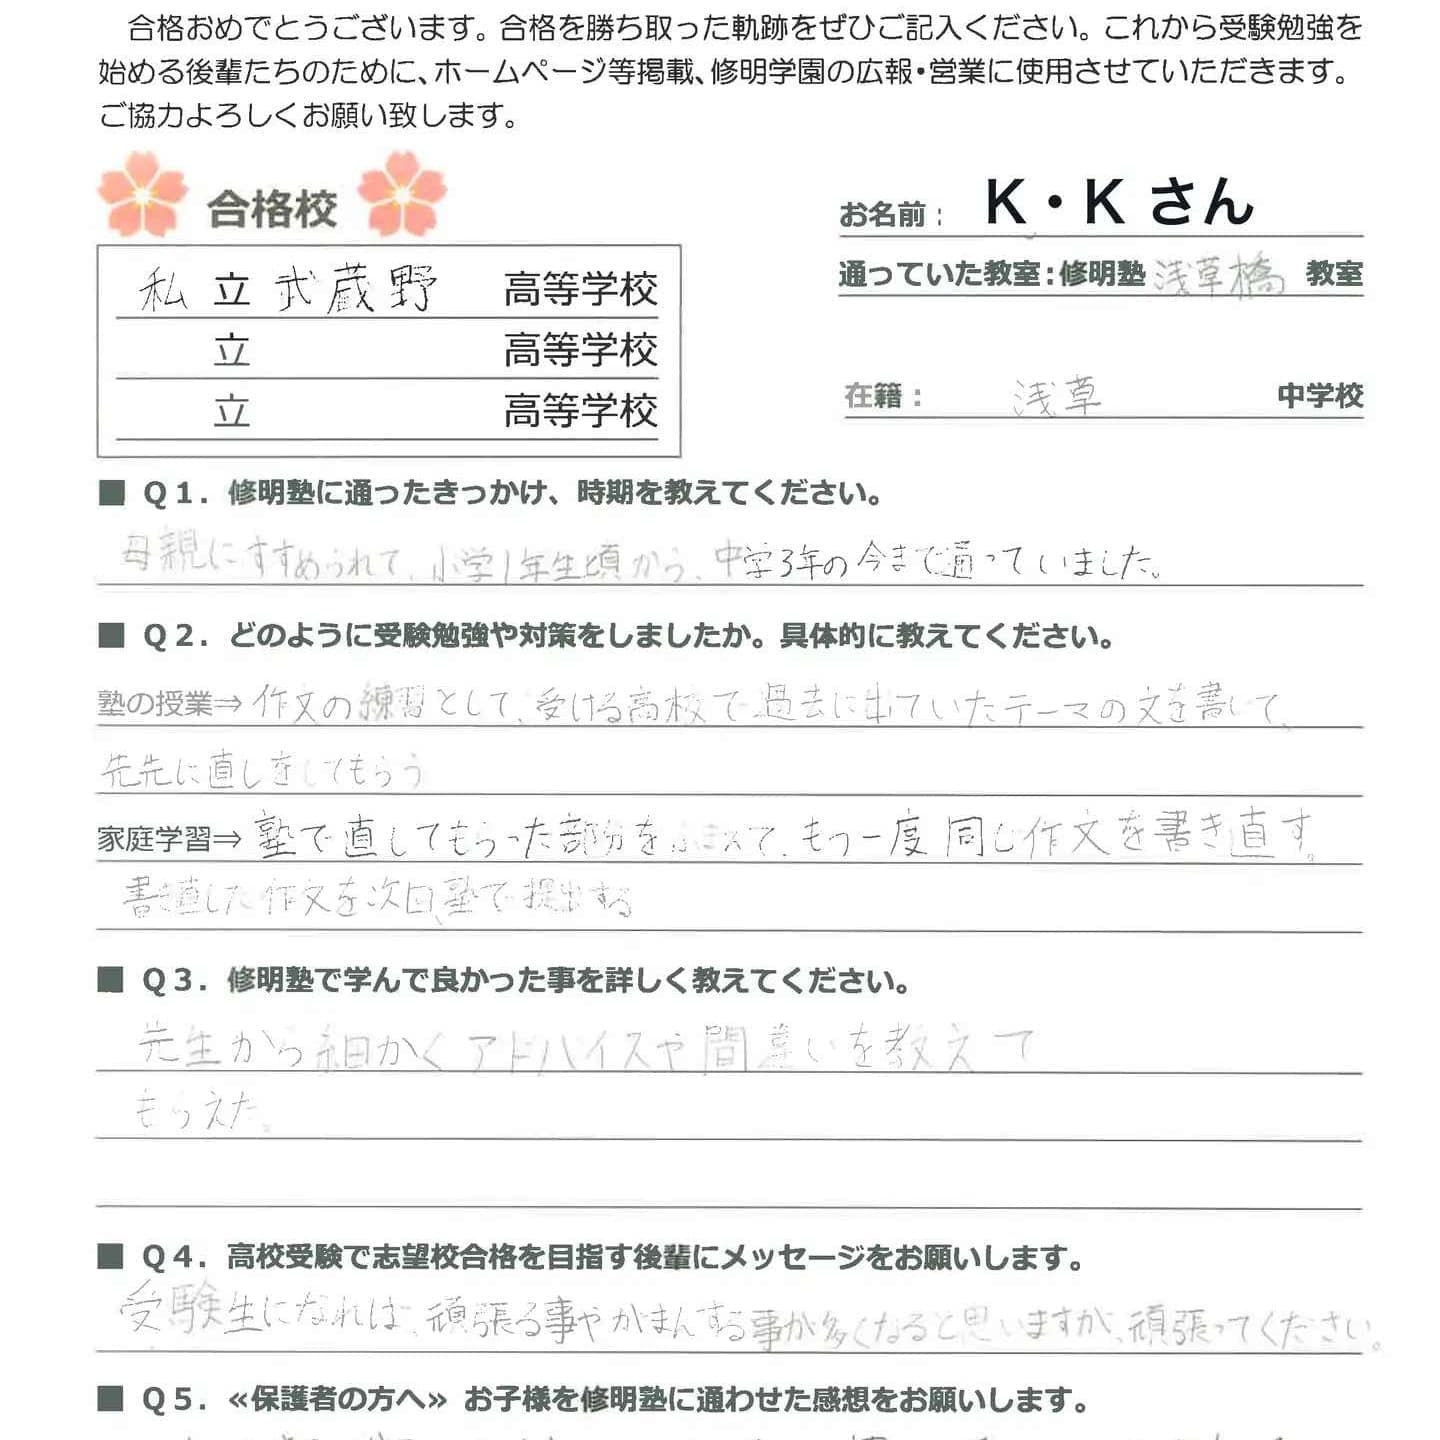 合格おめでとうございます。合格を勝ち取った軌跡をぜひご記入ください。これから受験勉強を
始める後輩たちのために、ホームページ等掲載、修明学園の広報・営業に使用させていただきます。
ご協力よろしくお願い致します。
合格校
私立武蔵野 高等学校
立 高等学校
立 高等学校
お名前： K・Kさん
通っていた教室：修明塾 浅草橋 教室
在籍： 浅草 中学校
■ Q1．修明塾に通ったきっかけ、時期を教えてください。
母親にすすめられて、小学1年生頃から、中学3年の今まで通っていました。
■ Q2．どのように受験勉強や対策をしましたか。具体的に教えてください。
塾の授業⇒作文の練習として、受ける高校で過去に出ていたテーマの文を書いて、
先先に直しをしてもらう
家庭学習⇒塾で直してもらった部分をふまえて、もう一度同じ作文を書き直す。
書き直した作文を次回、塾で提出する
■ Q3．修明塾で学んで良かった事を詳しく教えてください。
先生から細かくアドバイスや間違いを教えて
もらえた。
■ Q4．高校受験で志望校合格を目指す後輩にメッセージをお願いします。
受験生になれば、頑張る事やがまんする事が多くなると思いますが、頑張ってください。
■ Q5．≪保護者の方へ≫ お子様を修明塾に通わせた感想をお願いします。